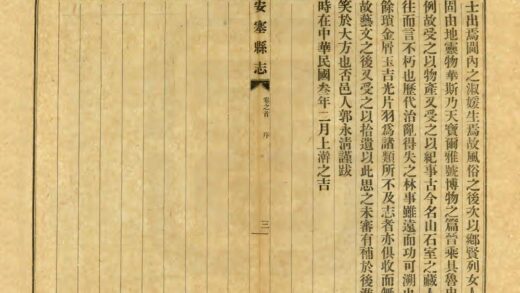 士出焉閫內之淑媛生焉故風俗之後次以鄉賢列女人
固由地靈物華斯乃天寶爾雅號博物之篇晉乘具魯史
例故受之以物產又受之以紀事古今名山石室之藏人
往而言不朽也歷代治亂得失之林事雖遠而功可溯也
餘瑣金屑玉吉光片羽爲諸類所不及志者亦俱收而無
故藝文之後又受之以拾遺以此思之未審有補於後進
笑於大方也否邑人郭永清謹跋
時在中華民國叁年二月上澣之吉
安塞縣志
卷之首 序
三